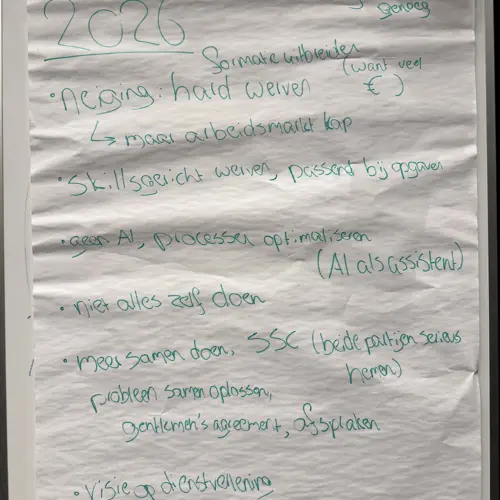 genoeg
2026
formatie uitbreiden
(want veel
• neiging: hard werven
€)
↳ maar arbeidsmarkt kap
• Skillsgericht werven, passend bij opgaven
• geen AI, processen optimaliseren
(AI als assistent)
• niet alles zelf doen
• meer samen doen, SSC (beide partijen serieus
nemen)
probleem samen oplossen,
gentlemen's agreement, afspraken
• visie op dienstverlening